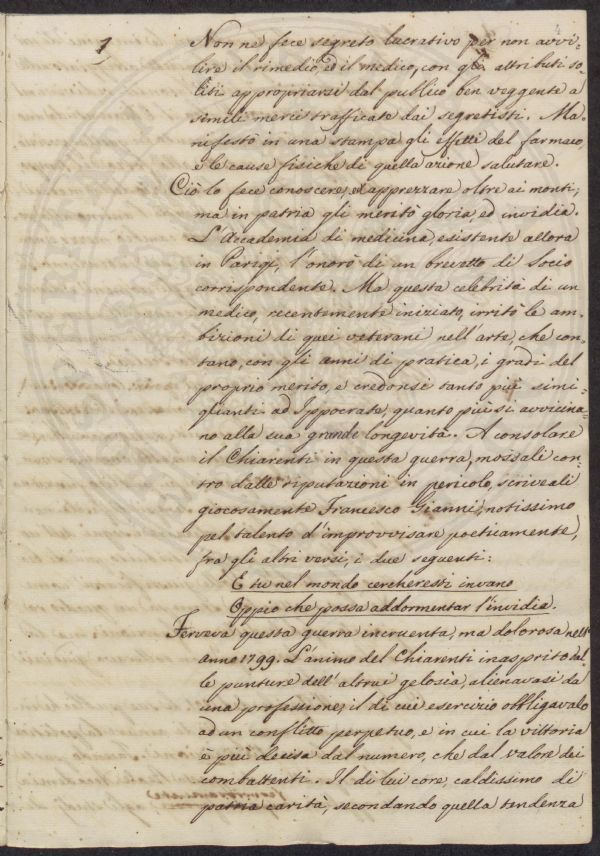 1
Non ne fece segreto lucrativo per non avvi-
lire il rimedio, ed il medico, con gli attributi so-
liti appropriarsi dal publico ben veggente a
simili merci trafficate dai segretisti. Ma-
nifestò in una stampa gli effetti del farmaco,
e le cause fisiche di quella azione salutare.
Ciò lo fece conoscere, ed apprezzare oltre ai monti;
ma in patria gli meritò gloria, ed invidia.
L'Accademia di medicina, esistente allora
in Parigi, l'onorò di un brevetto di Socio
corrispondente. Ma questa celebrità di un
medico, recentemente iniziato, irritò le am-
bizioni di quei veterani nell'arte, che con-
tano, con gli anni di pratica, i gradi del
proprio merito, e credonsi tanto più simi-
glianti ad Ippocrate, quanto più si avvicina-
no alla sua grande longevità. A consolare
il Chiarenti in questa guerra, mossali con-
tro dalle riputazioni in pericolo, scriveali
giocosamente Francesco Gianni, notissimo
pel talento d'improvvisare poeticamente,
fra gli altri versi, i due seguenti:
E tu nel mondo cercheresti invano
Oppio che possa addormentar l'invidia.
Ferveva questa guerra incruenta, ma dolorosa nell'
anno 1799. L'animo del Chiarenti inasprito dal-
le punture dell'altrui gelosia, alienavasi da
una professione, il di cui esercizio obbligavalo
ad un conflitto perpetuo, e in cui la vittoria
è più decisa dal numero, che dal valore dei
combattenti. Il di lui core, caldissimo di
patria carità, secondando quella tendenza